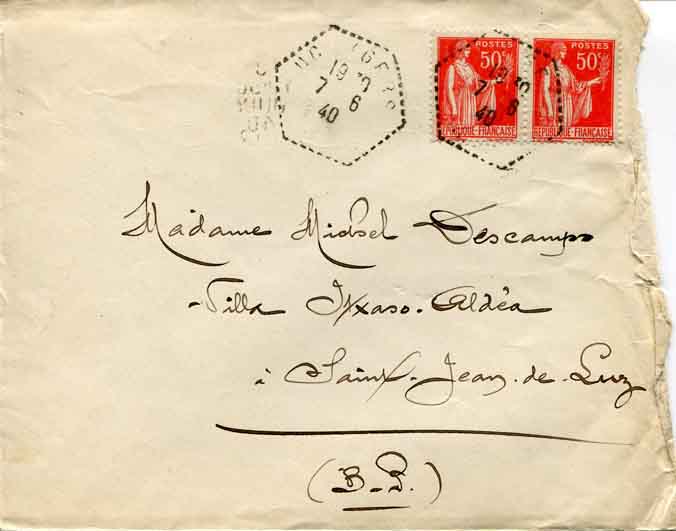 19 30
7 6
40
POSTES
50c
REPUBLIQUE FRANÇAISE
POSTES
50c
REPUBLIQUE FRANÇAISE
19 30
7 6
40
Madame Michel Descamps
Villa Itxaso-Aldéa
à Saint-Jean-de-Luz
(B.P.)